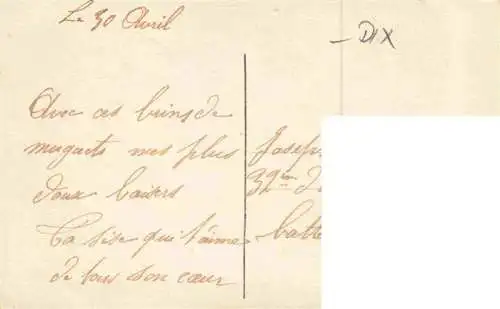 Le 30 Avril
DIX
Avec ces brins de
muguets mes plus
doux baisers
Ta sise qui t'aime
de tous son cœur
Joseph
32ème
batte